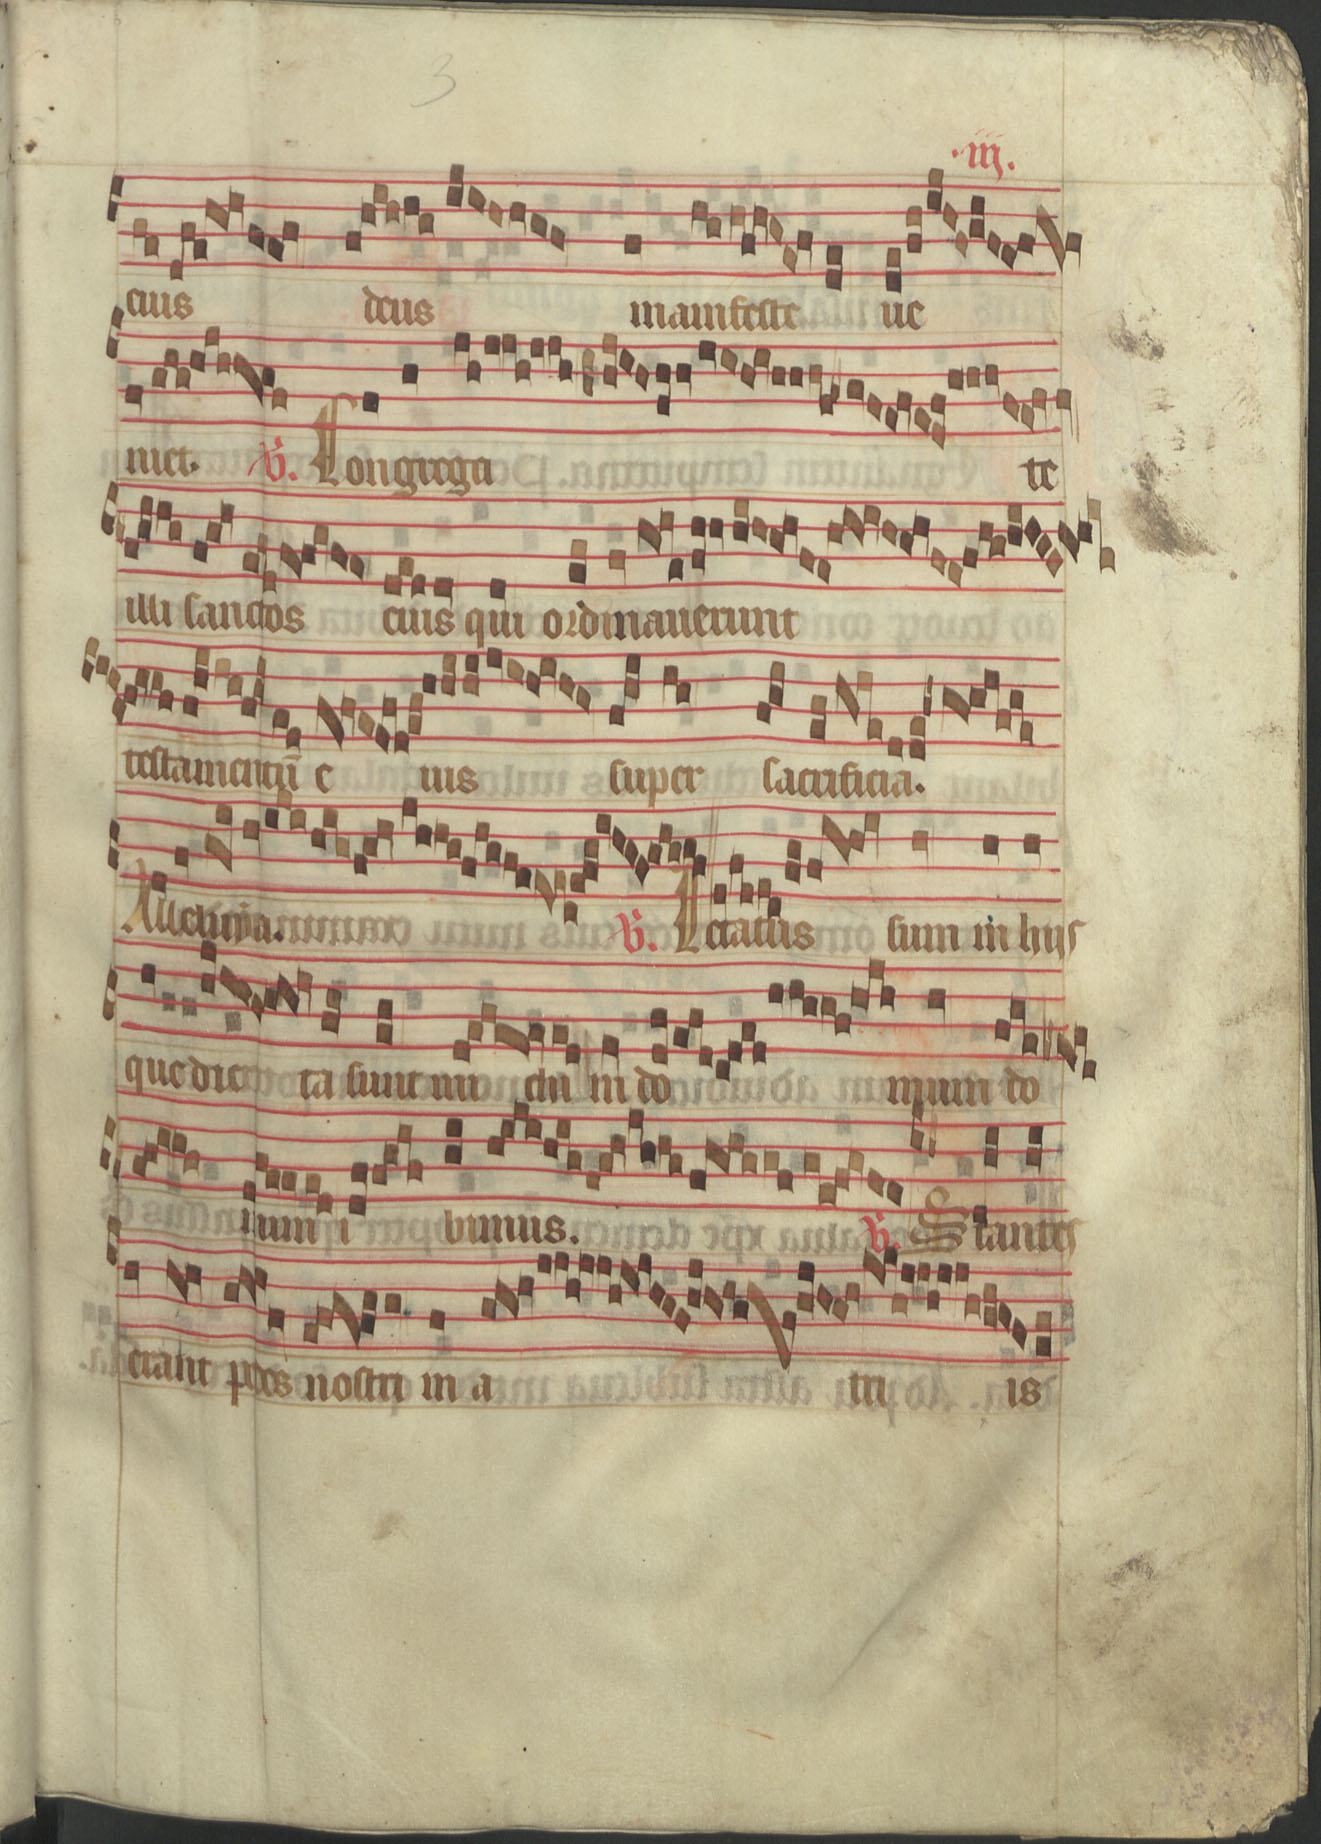 3
·iij.
eius deus manifeste ue
niet. V. Congrega te
illi sanctos eius qui ordinauerunt
testamentū e ius super sacrificia.
Alleluya. V. Letatus sum in hijs
que dicta ta sunt mi chi in do mum do
mini i bimus. V. Stantes
erant pedes nostri in a tri is